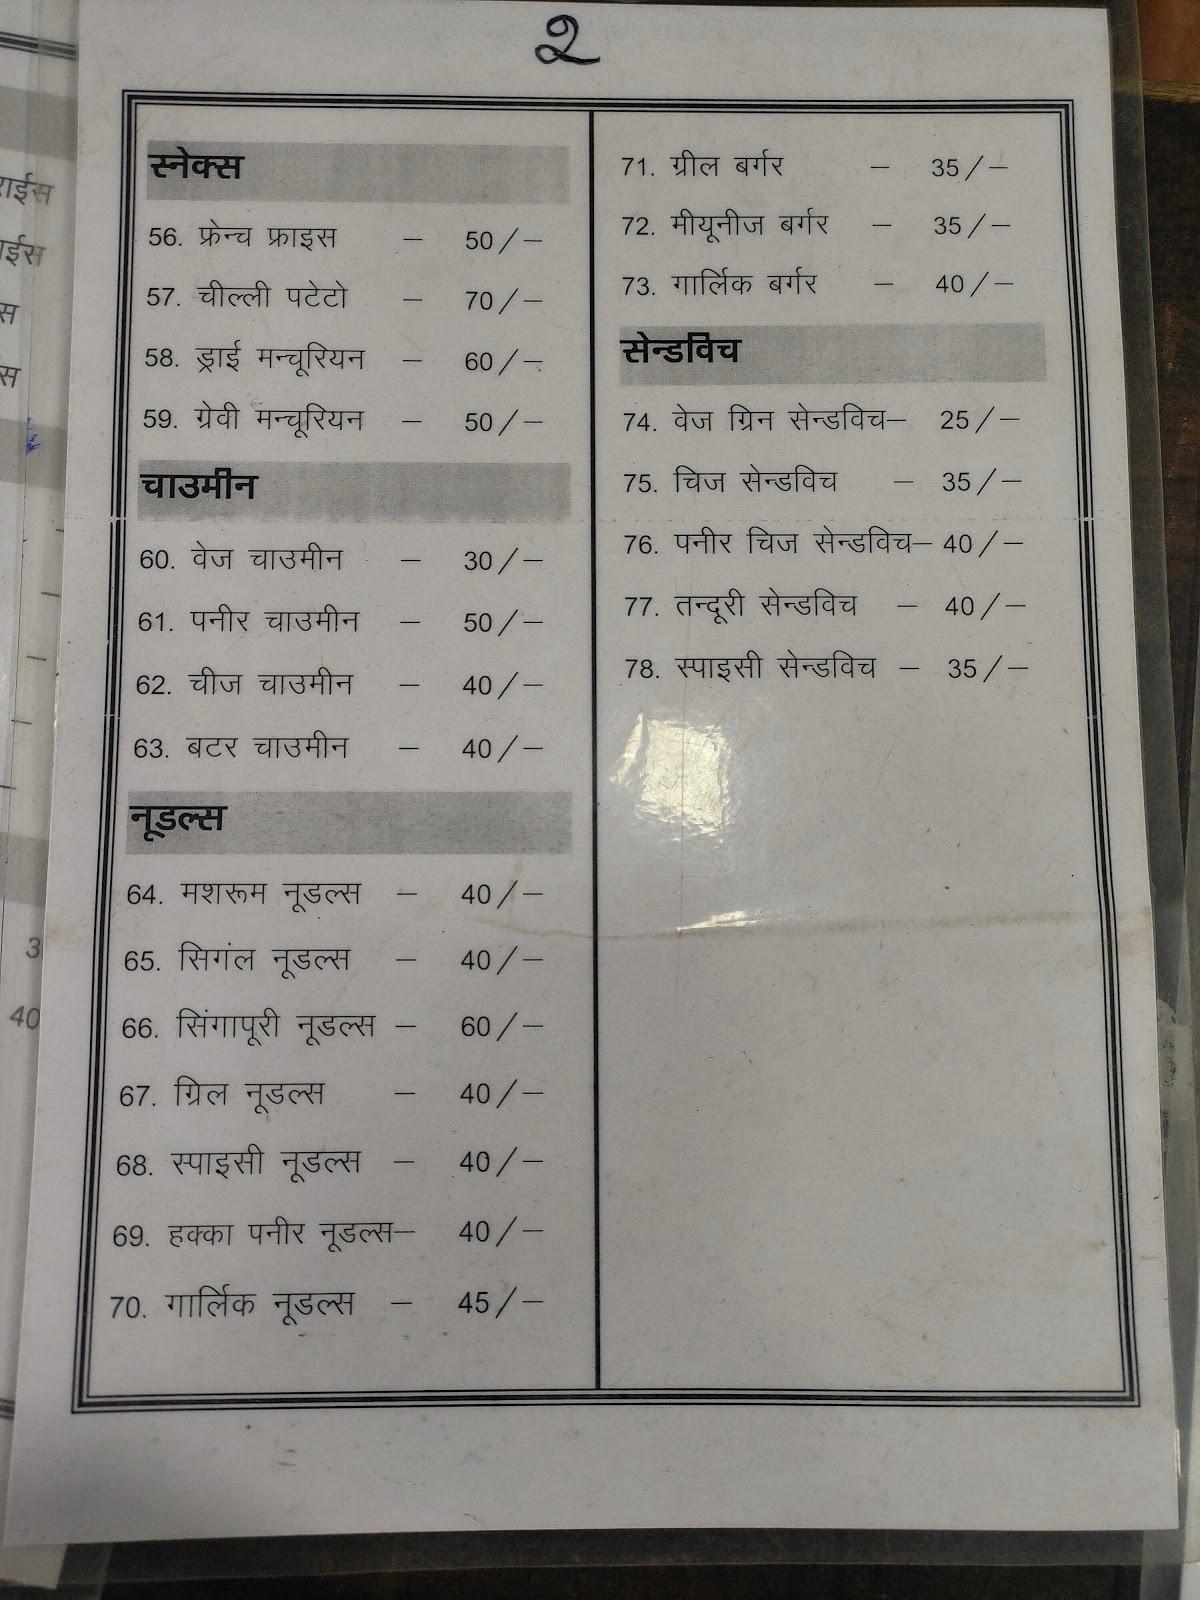 २
स्नेक्स
56. फ्रेन्च फ्राइस – 50/–
57. चील्ली पटेटो – 70/–
58. ड्राई मन्चूरियन – 60/–
59. ग्रेवी मन्चूरियन – 50/–
चाउमीन
60. वेज चाउमीन – 30/–
61. पनीर चाउमीन – 50/–
62. चीज चाउमीन – 40/–
63. बटर चाउमीन – 40/–
नूडल्स
64. मशरूम नूडल्स – 40/–
65. सिगंल नूडल्स – 40/–
66. सिंगापूरी नूडल्स – 60/–
67. ग्रिल नूडल्स – 40/–
68. स्पाइसी नूडल्स – 40/–
69. हक्का पनीर नूडल्स– 40/–
70. गार्लिक नूडल्स – 45/–
71. ग्रील बर्गर – 35/–
72. मीयूनीज बर्गर – 35/–
73. गार्लिक बर्गर – 40/–
सेन्डविच
74. वेज ग्रिन सेन्डविच– 25/–
75. चिज सेन्डविच – 35/–
76. पनीर चिज सेन्डविच– 40/–
77. तन्दूरी सेन्डविच – 40/–
78. स्पाइसी सेन्डविच – 35/–